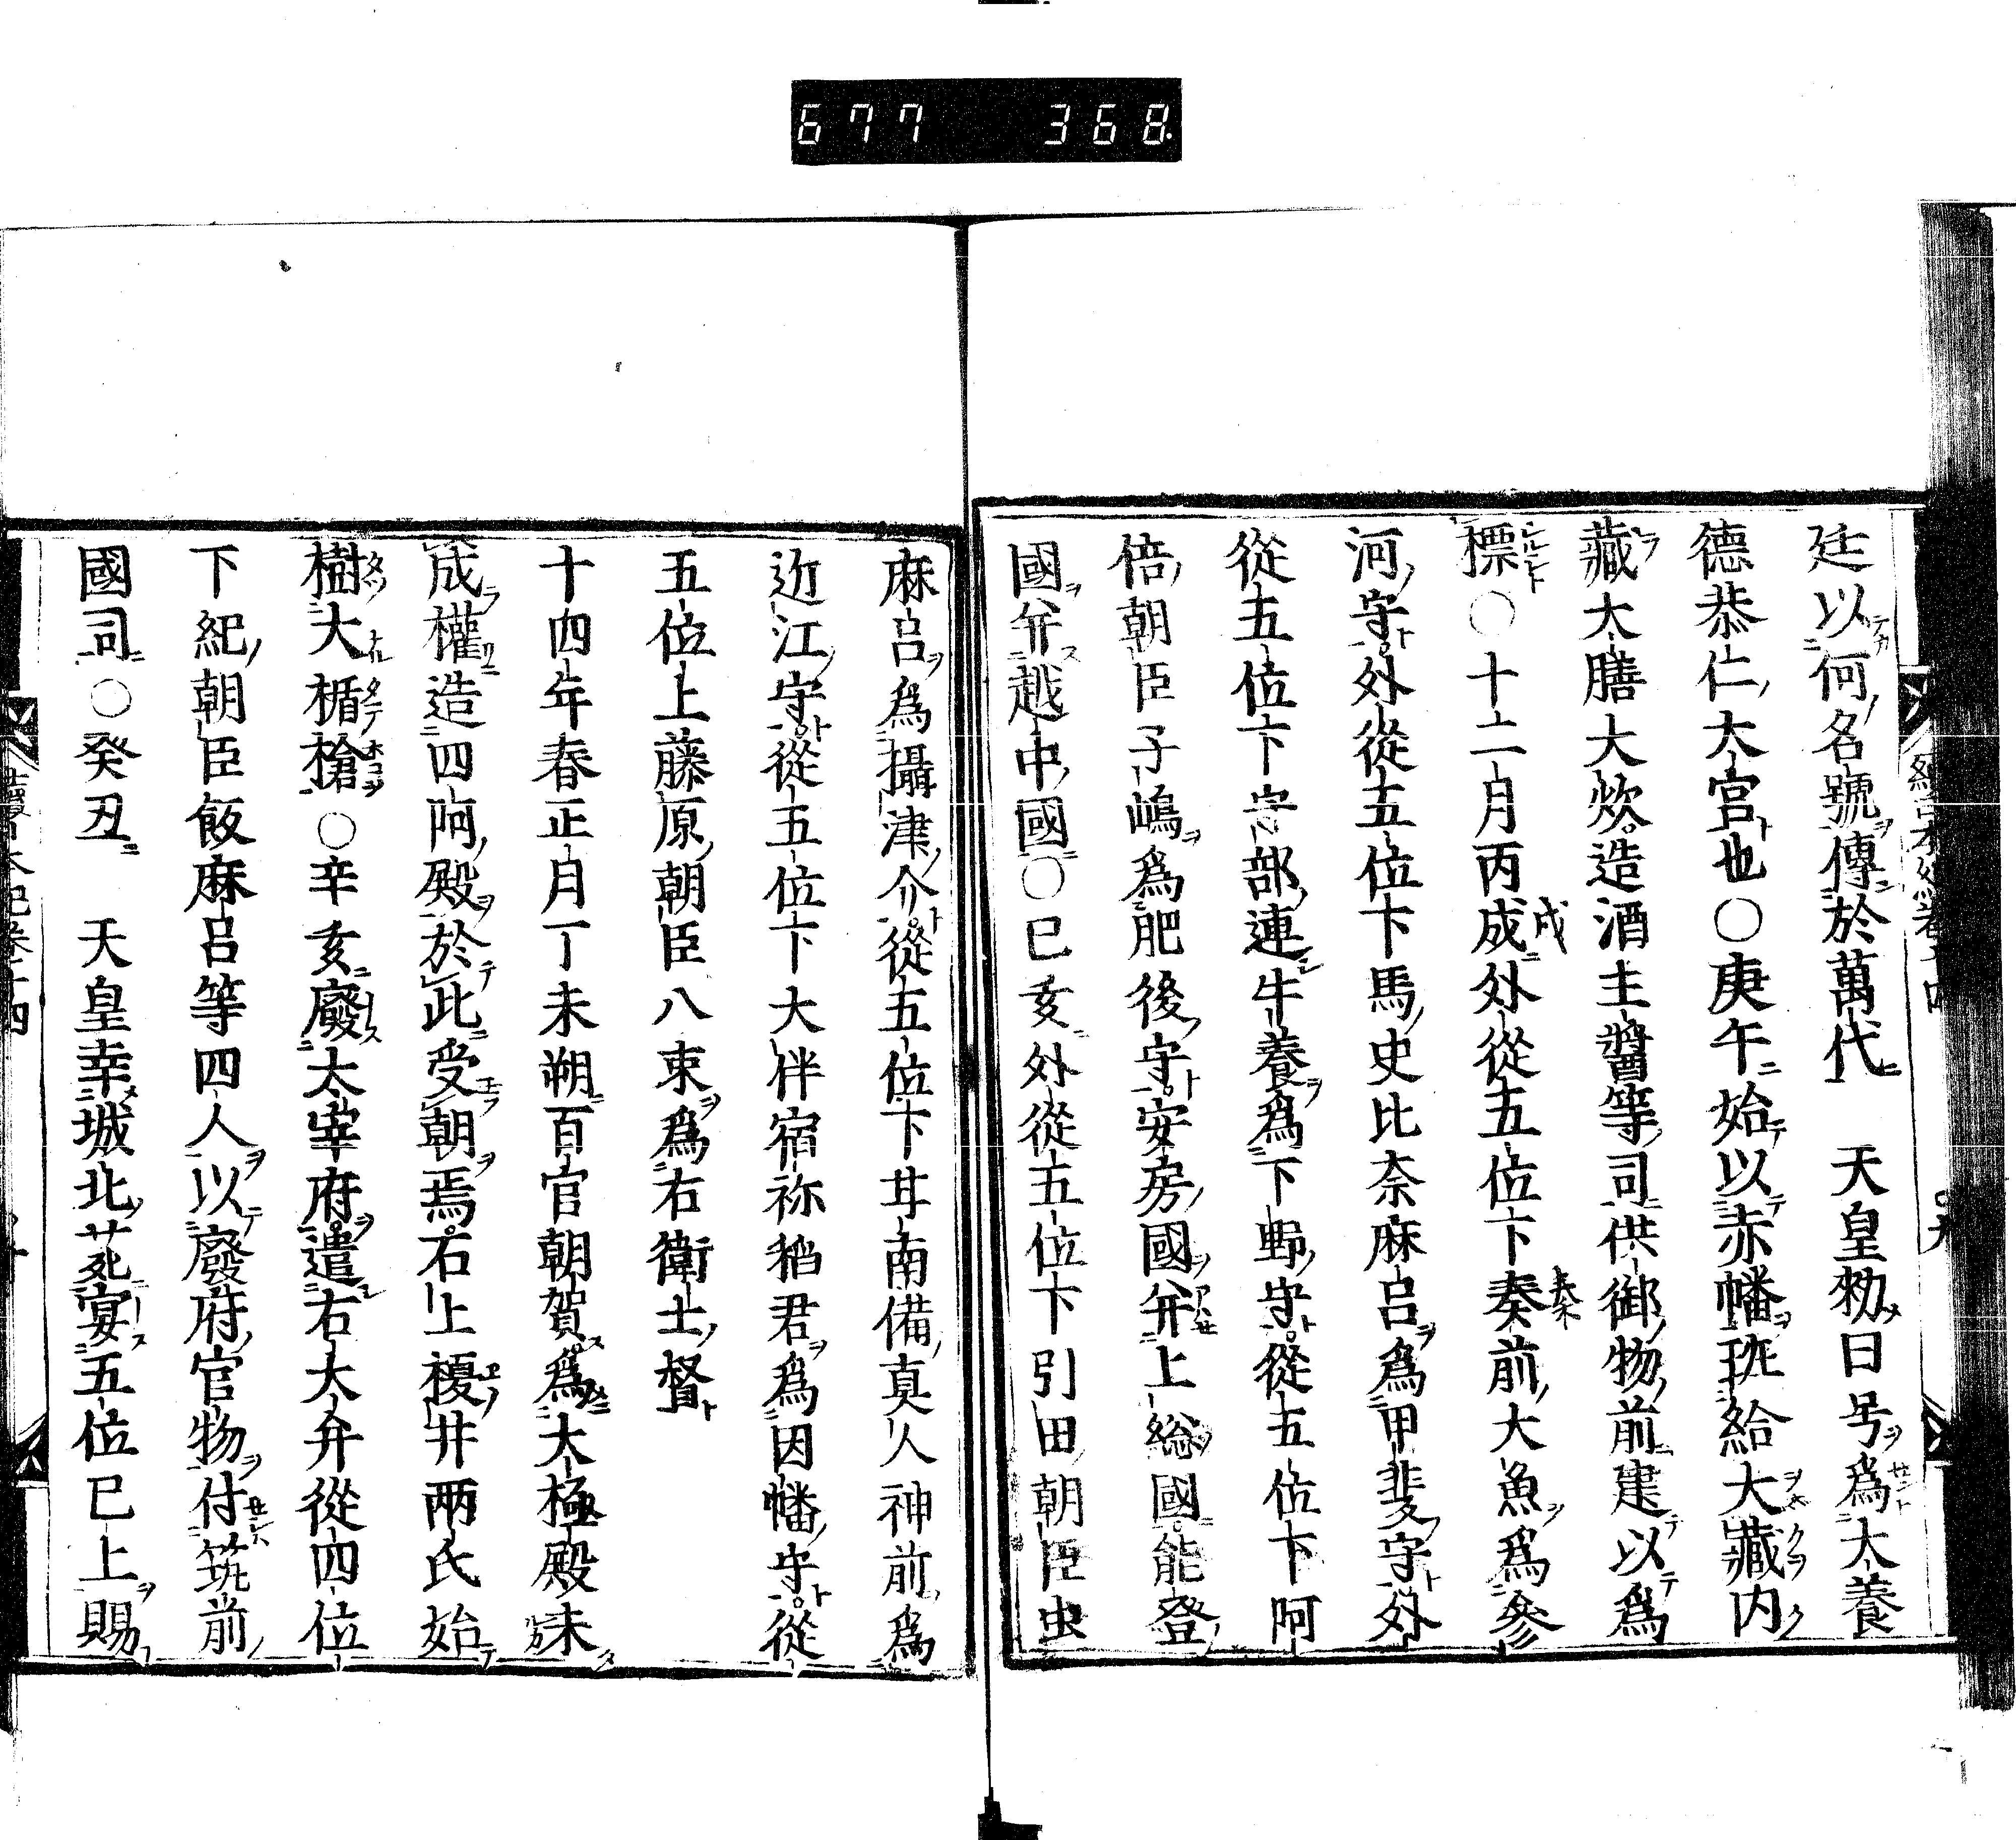 677 368
廷以何名號傳於萬代　天皇勑曰号爲大養
德恭仁大宮也○庚午始以赤幡班給大藏内
藏大膳大炊造酒主醬等司供御物前建以爲
標○十二月丙成外從五位下奏前大魚爲參
河守外從五位下馬史比奈麻呂爲甲斐守外
從五位下守部連牛養爲下野守從五位下阿
倍朝臣子嶋爲肥後守安房國并上総國能登
國并越中國○已亥外從五位下引田朝臣虫
麻呂爲攝津介從五位下井南備真人神前爲
近江守從五位下大伴宿祢稻君爲因幡守從
五位上藤原朝臣八束爲右衛士督
十四年春正月丁未朔百官朝賀爲大極殿未
成權造四阿殿於此受朝焉石上榎井兩氏始
樹大楯槍○辛亥廢太宰府遣右大弁從四位
下紀朝臣飯麻呂等四人以廢府官物付筑前
國司○癸丑　天皇幸城北苑宴五位已上賜